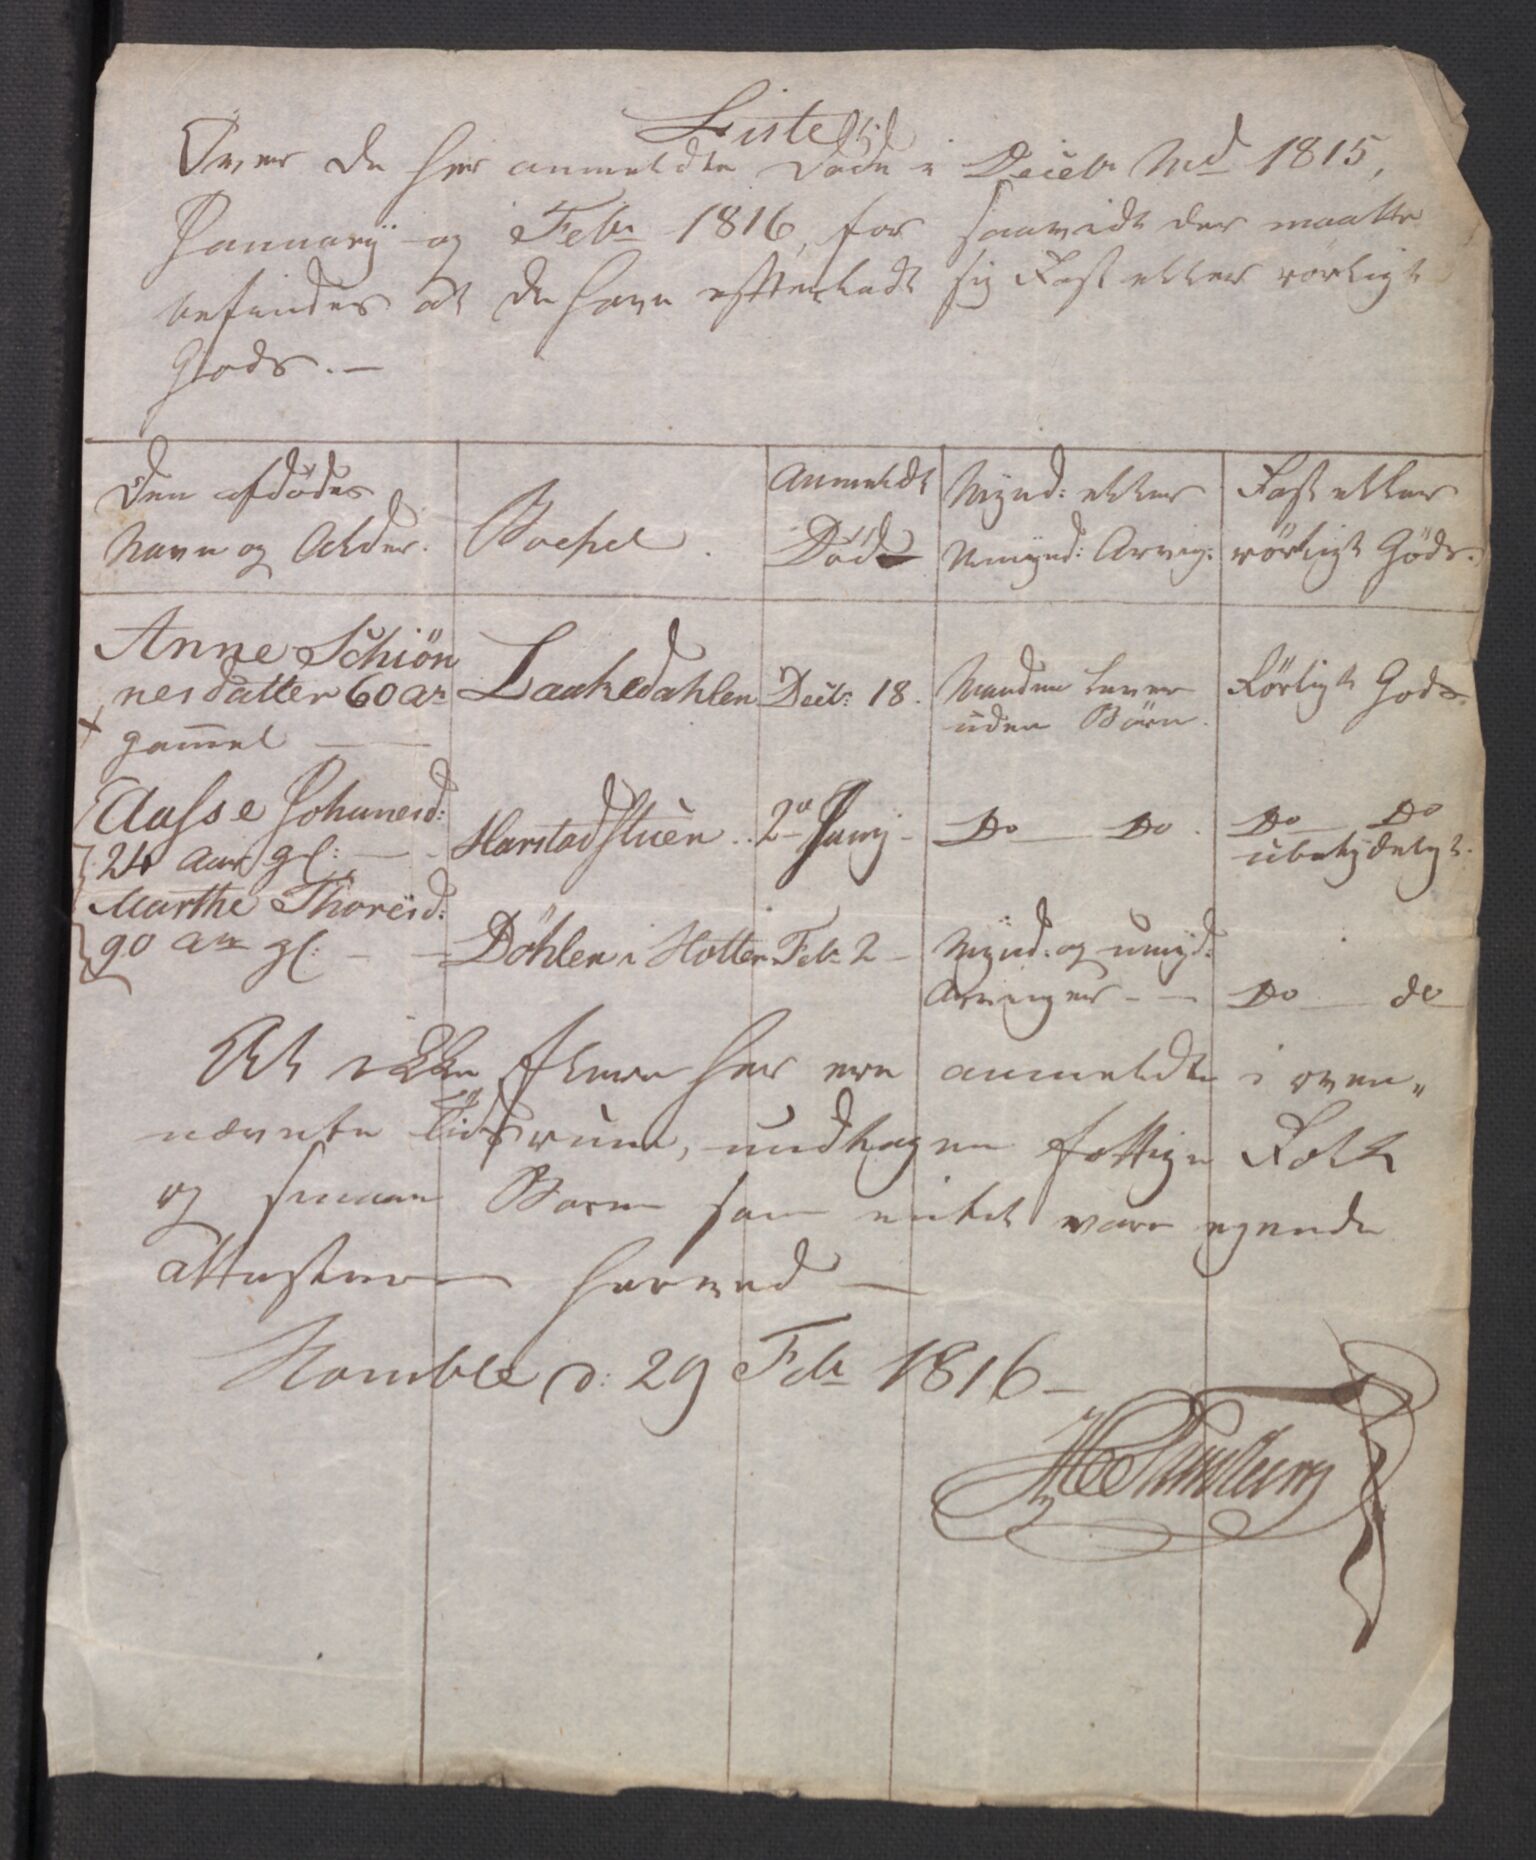 Liste
Over de her anmeldte Døde i Decebr Md 1815,
Januarÿ og Febr 1816, for saavidt der maatte
befindes at de have efterladt sig Fast eller rörligt
Gods. —
Den afdødes
Navn og Alder.
Bopel.
Anmeldt
Död
Mÿnd: eller
Umÿnd: Arving:
Fast eller
rörligt Göds.
Anne Schiön
nesdatter 60 ar
gam̄el —
Laakedahlen
Decbr: 18.
Manden Lever
uden Börn.
Rörligt Gods.
Aasse Johanesd:
24 Aar gl: —
Harstadstuen ..
2 Janÿ —
Do — Do .
Do — Do
ubetÿdeligt.
Marthe Thoresd:
90 Aar gl: — —
Döhlen i Holten
Febr 2 —
Mÿnd. og umÿd:
Arvinger — —
Do — do
At ikke flere her ere anmeldte i oven„
nævnte Tidsrum, undtagen fattige Folk
og smaae Börn som intet vare egende
attesteres herved —
Bamble d: 29 Febr 1816 —